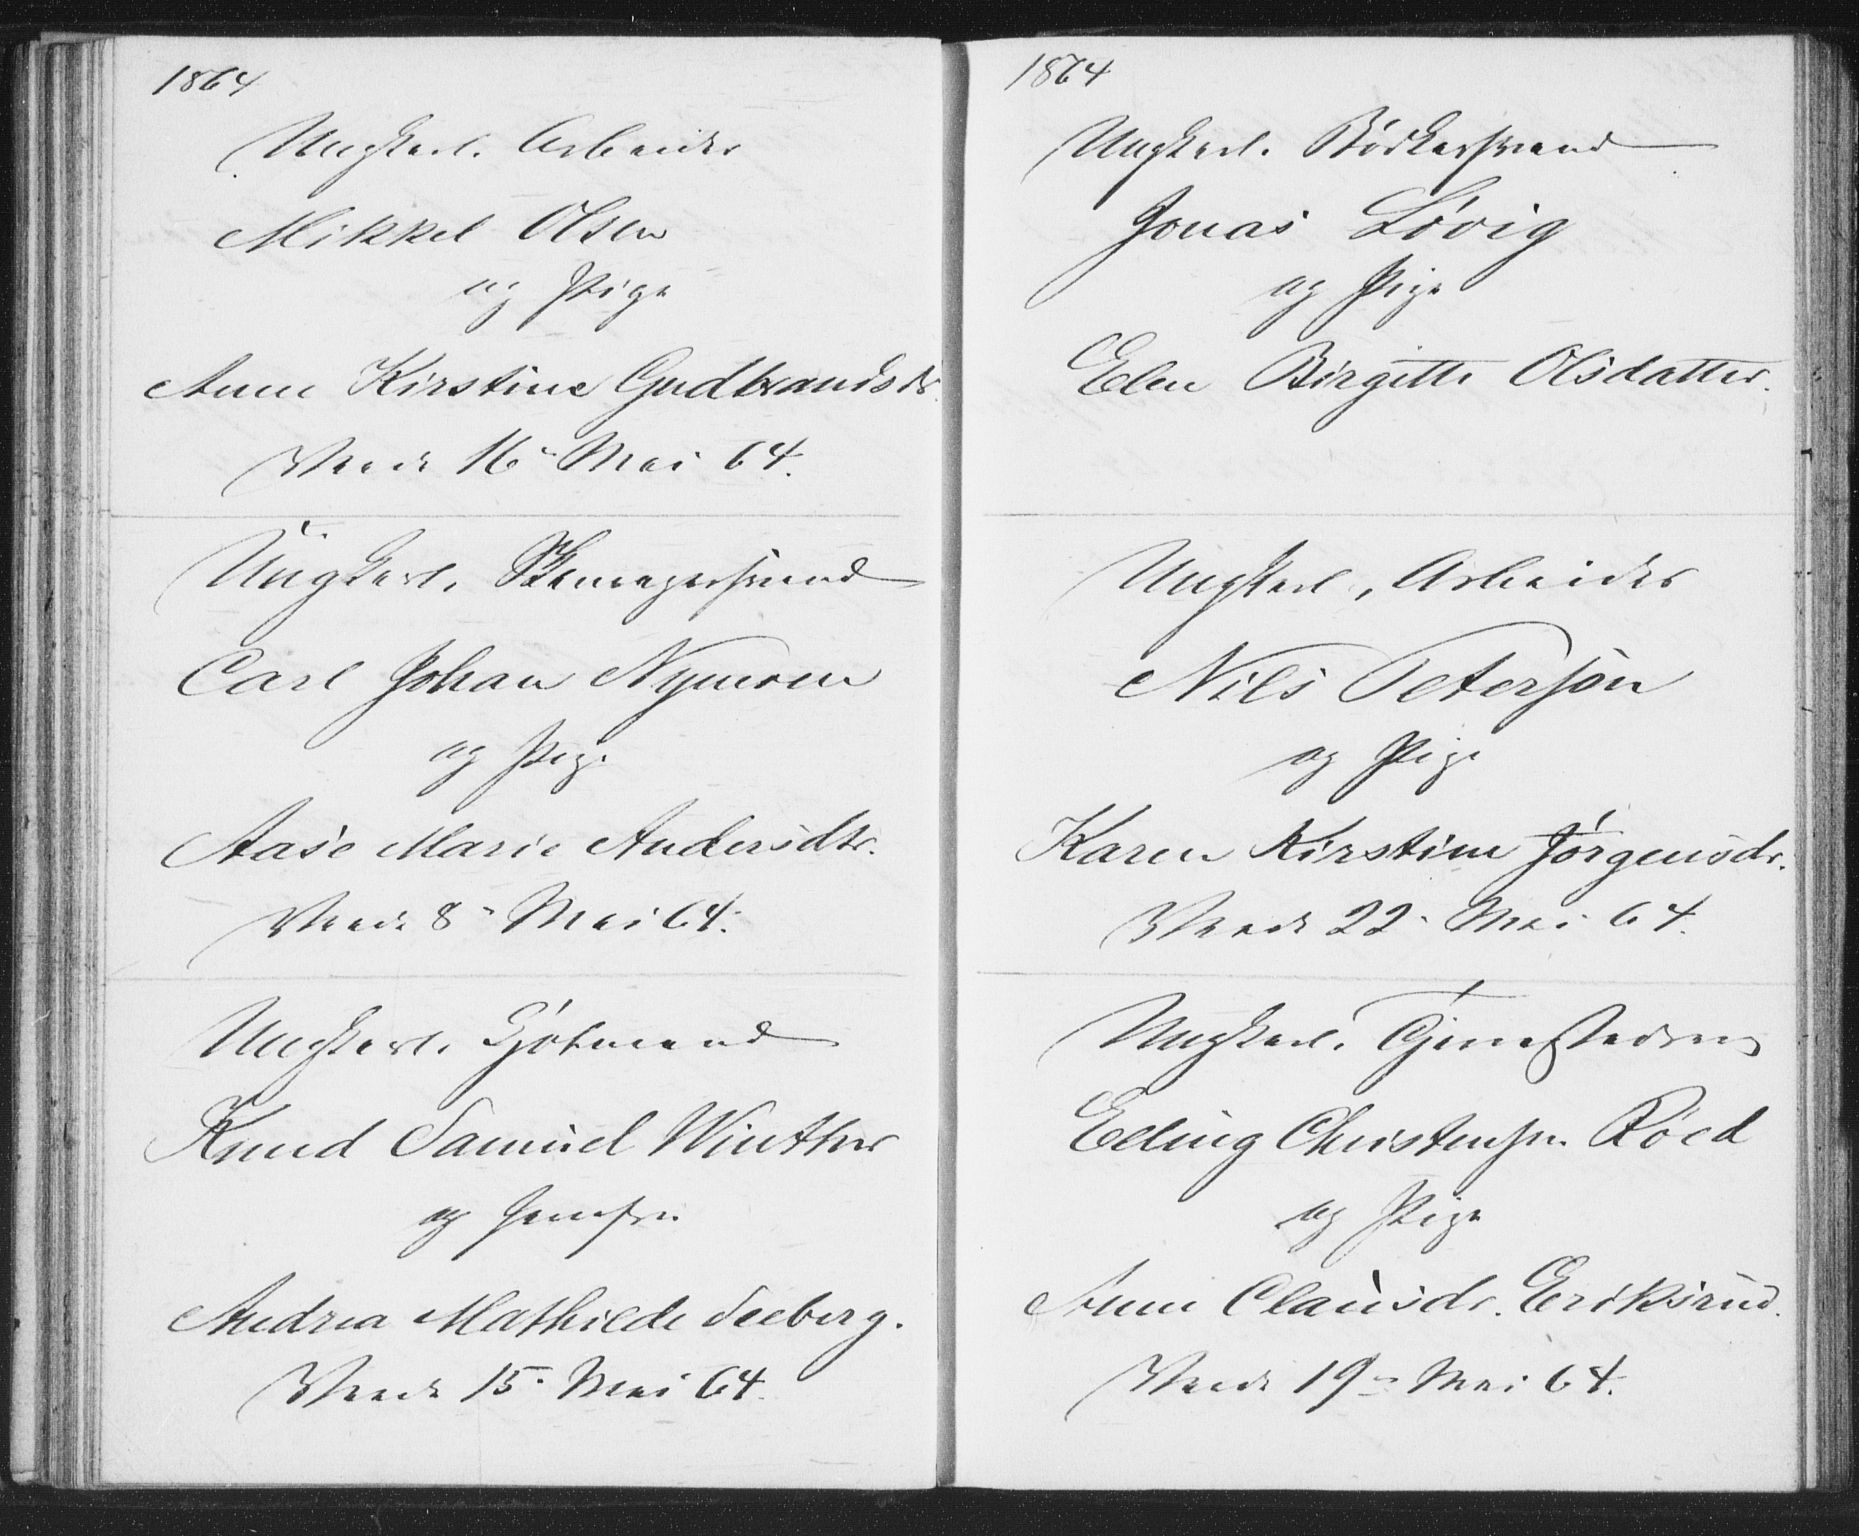 1864
Ungkarl. Arbeider
Mikkel Olsen
og Pige
Anne Kirstine Gudbrandsdr.
Viede 16 Mai 64.
Ungkarl. Skomagersvend
Carl Johan Nymoen
og Pige
Aase Marie Andersdtr.
Viede 8 Mai 64.
Ungkarl. Sjömand
Knud Samuel Winther
og Jomfru
Andrea Mathilde Seeberg.
Viede 15 Mai 64.
1864
Ungkarl. Bödkersvend
Jonas Lövig
og Pige
Elen Birgitte Olsdatter.
Ungkarl, Arbeider
Nils Peterson
og Pige
Karen Kirstine Jörgensdr.
Viede 22 Mai 64.
Ungkarl.
Elling Christensen Röed
og Pige
Anne Clausdr. Eriksrud.
Viede 19 Mai 64.